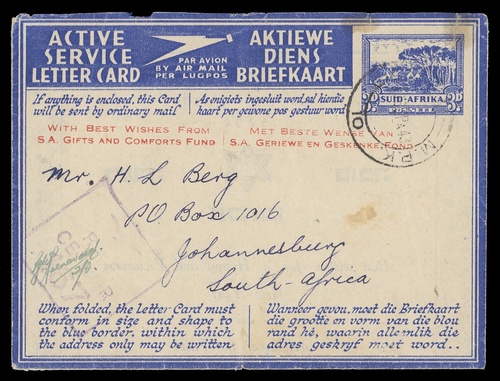 ACTIVE SERVICE LETTER CARD
PAR AVION
BY AIR MAIL
PER LUGPOS
AKTIEWE DIENS BRIEFKAART
SUID-AFRIKA
POSSEËL
If anything is enclosed, this Card
will be sent by ordinary mail
As enigiets ingesluit word, sal hierdie
kaart per gewone pos gestuur word
WITH BEST WISHES FROM
S.A. GIFTS AND COMFORTS FUND
MET BESTE WENSE VAN
S.A. GERIEWE EN GESKENKE FOND
Mr. H. L Berg
P.O. Box 1016
Johannesburg
South-Africa
When folded, the Letter Card must
conform in size and shape to
the blue border, within which
the address only may be written
Wanneer gevou, moet die Briefkaart
die grootte en vorm van die blou
rand hê, waarin alle mlik die
adres geskryf moet word..